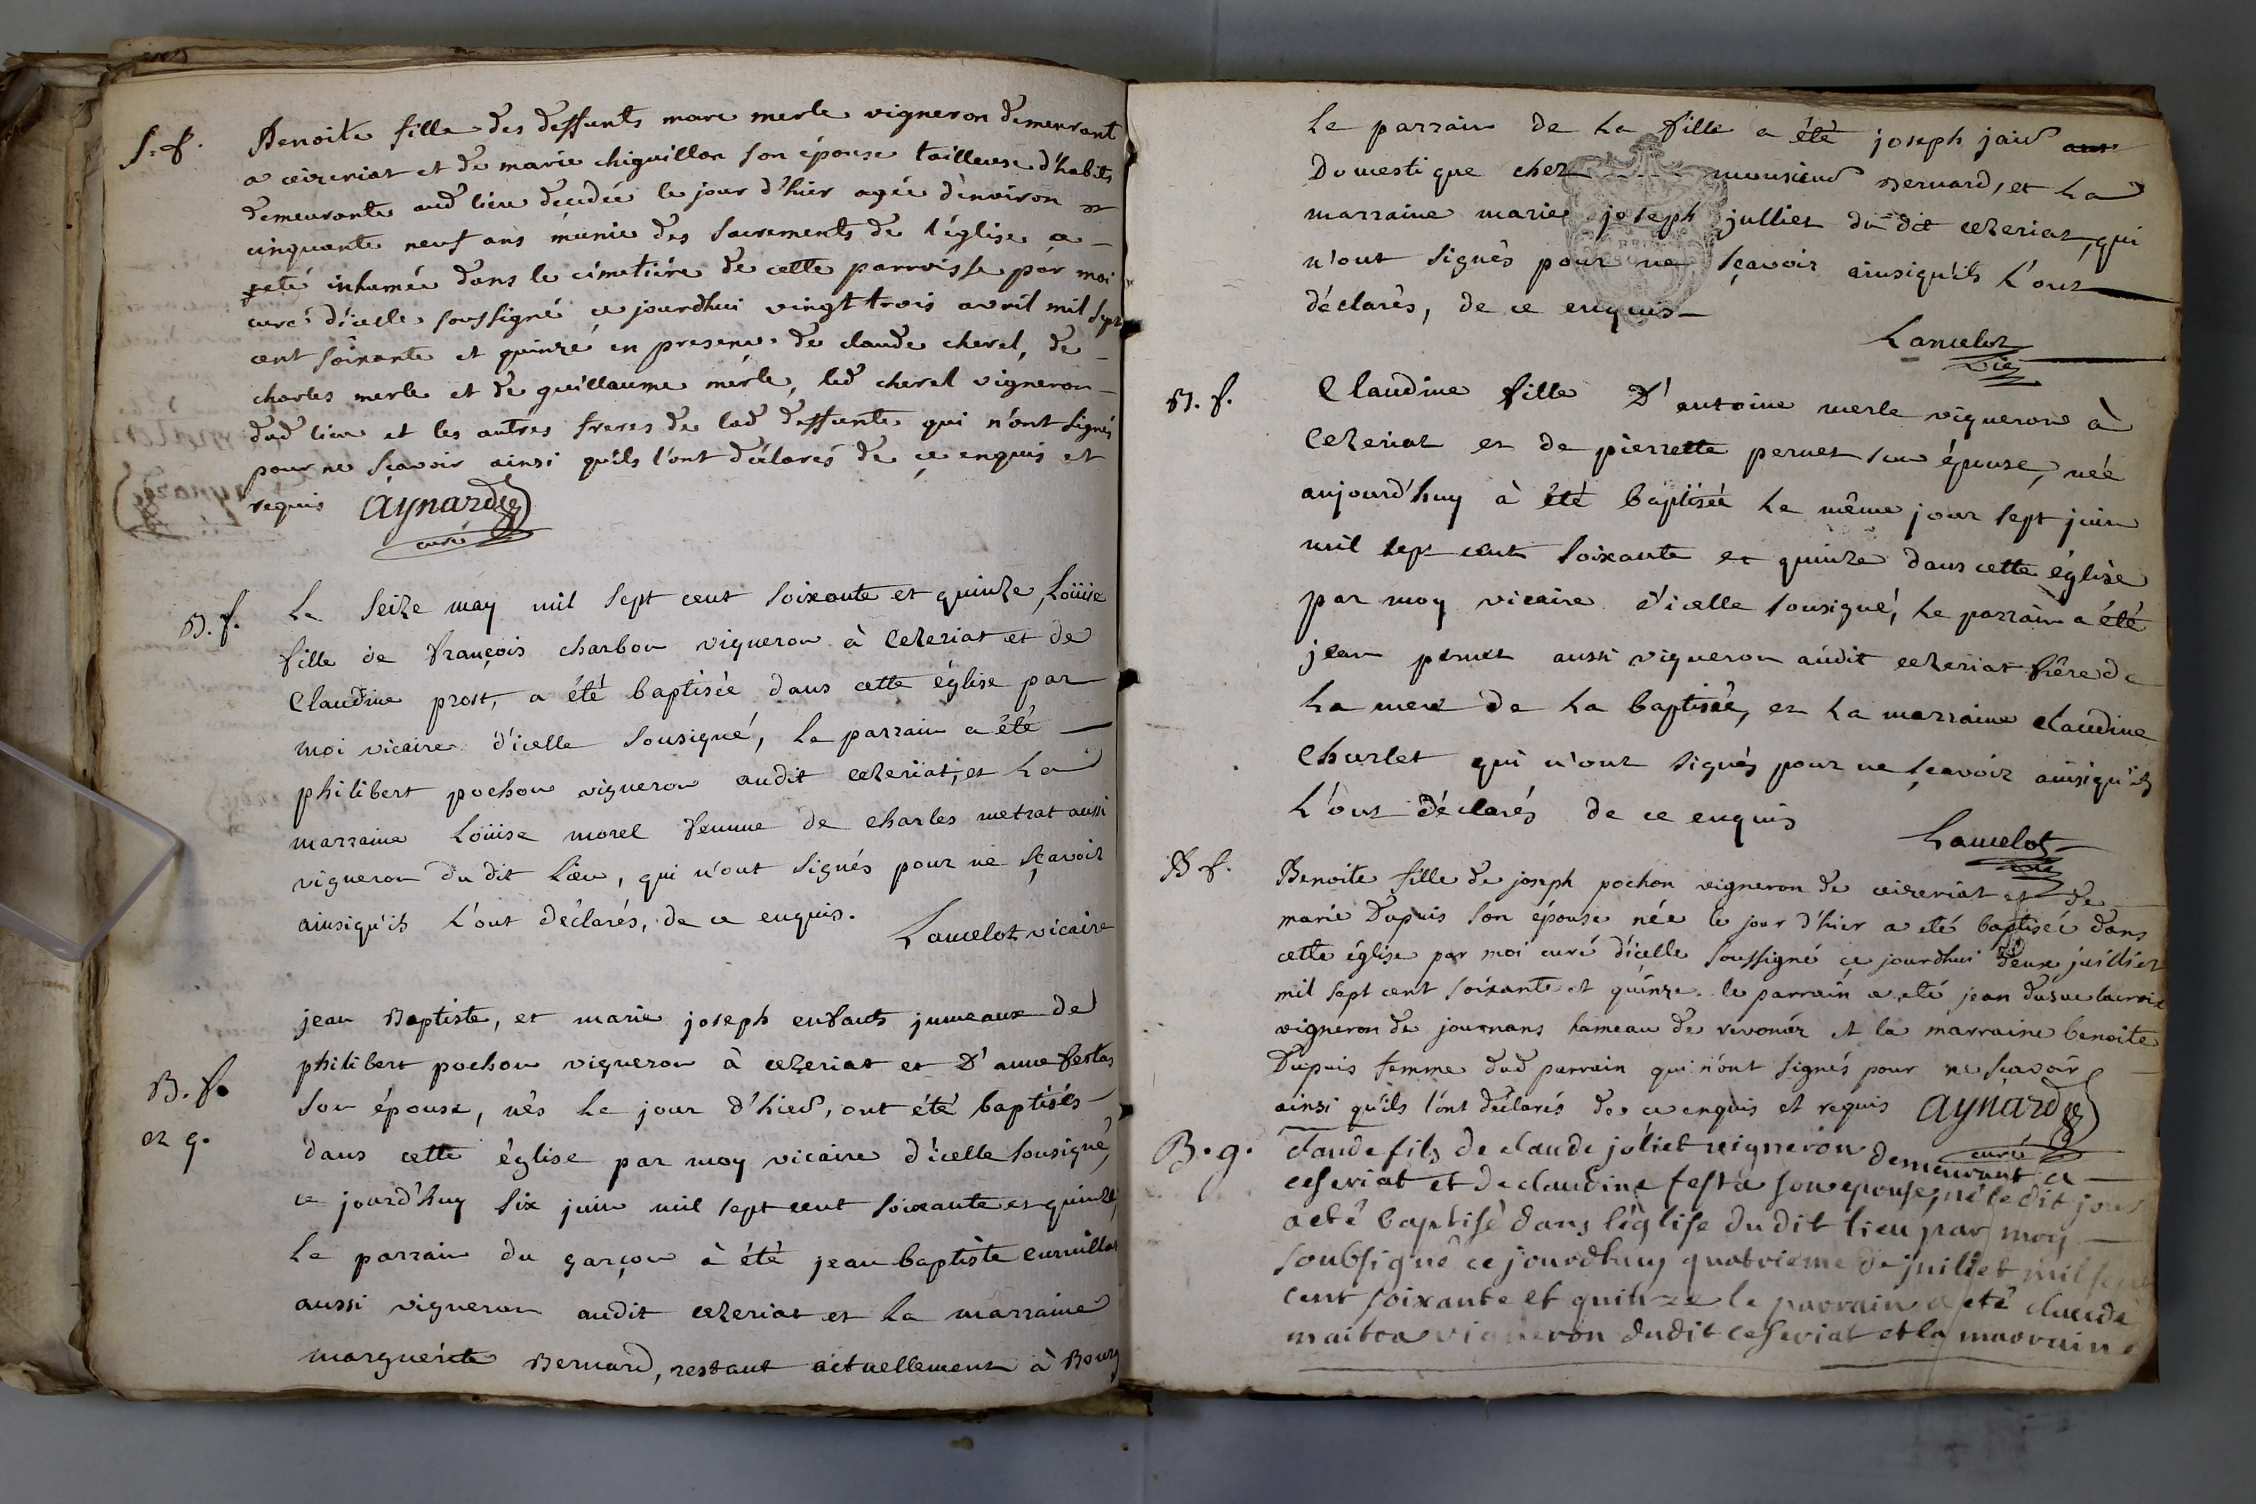 S. f. Benoite fille des deffunts marc merle vigneron demeurant
a ceizeriat et de marie chiguillon son épouse tailleuse d'habits
demeurante aud lieu decédée le jour d'hier agée d'environ
cinquante neuf ans munie des sacrements de l'église a
eté inhumée dans le cimetiére de cette parroisse par moi
curé d'icelle soussigné ce jourdhui vingt trois avril mil sept
cent soixante et quinze en presence de claude cherel, de
charles merle et de guillaume merle, led cherel vigneron
dud lieu et les autres freres de lad deffunte qui n'ont signés
pour ne sçavoir ainsi qu'ils l'ont déclarés de ce enquis et
requis Aynard
curé
B. f. Le seize may mil sept cent soixante et quinze, Loüise
fille de françois charbon vigneron à Cezeriat et de
Claudine prost, a été baptisée dans cette église par
moi vicaire d'icelle sousigné, le parrain a été
philibert pochon vigneron audit cezeriat, et la
marraine Loüise morel femme de charles metrat aussi
vigneron du dit Lieu, qui n'ont signés pour ne sçavoir
ainsiqu'ils l'ont déclarés, de ce enquis. Lancelot vicaire
jean Baptiste, et marie joseph enfants jumeaux de
philibert pochon vigneron à cezeriat et d'anne festas
B. f.
et g.
son épouse, nés le jour d'hier, ont été baptisés
dans cette église par moy vicaire d'icelle sousigné,
ce jourd'huy six juin mil sept cent soixante et quinze,
le parrain du garçon à été jean baptiste
aussi vigneron audit cezeriat et la marraine
marguerite Bernard, restant actuellement à Bourg
Le parrain de la fille a été joseph
Domestique chez monsieur Bernard, et la
marraine marie joseph jullier du dit cezeriat, qui
n'ont signés pour ne sçavoir ainsiqu'ils l'ont
déclarés, de ce enquis
Lancelot
vic
B. f. Claudine fille d'antoine merle vigneron à
Cezeriat et de pierrette pernet son épouse, née
aujourd'huy à été baptisée le même jour sept juin
mil sept cent soixante et quinze dans cette église
par moy vicaire d'icelle sousigné, le parrain a été
jean pernet aussi vigneron audit cezeriat frère de
la mere de la baptisée, et la marraine claudine
Churlet qui n'ont signés pour ne sçavoir ainsiqu'ils
l'ont déclarés de ce enquis
Lancelot
vic
B f. Benoite fille de joseph pochon vigneron de ceizeriat et de
marie Dupuis son épouse née le jour d'hier a eté baptisée dans
cette église par moi curé d'icelle soussigné ce jourdhui deux juillet
mil sept cent soixante et quinze. le parrain a eté jean lacroix
vigneron de journans hameau de revonas et la marraine benoite
Dupuis femme dud parrain qui n'ont signés pour ne sçavoir
ainsi qu'ils l'ont déclarés de ce enquis et requis Aynard
curé
B. g. claude fils de claude joliet vigneron demeurant a
ceseriat et de claudine festa son epouse, né le dit jour
a eté baptisé dans l'église du dit lieu par moy
soubsigné ce jourdhuy quatrieme de juillet mil sept
cent soixante et quinze le parrain a eté claude
maitra vigneron dudit ceseriat et la marraine